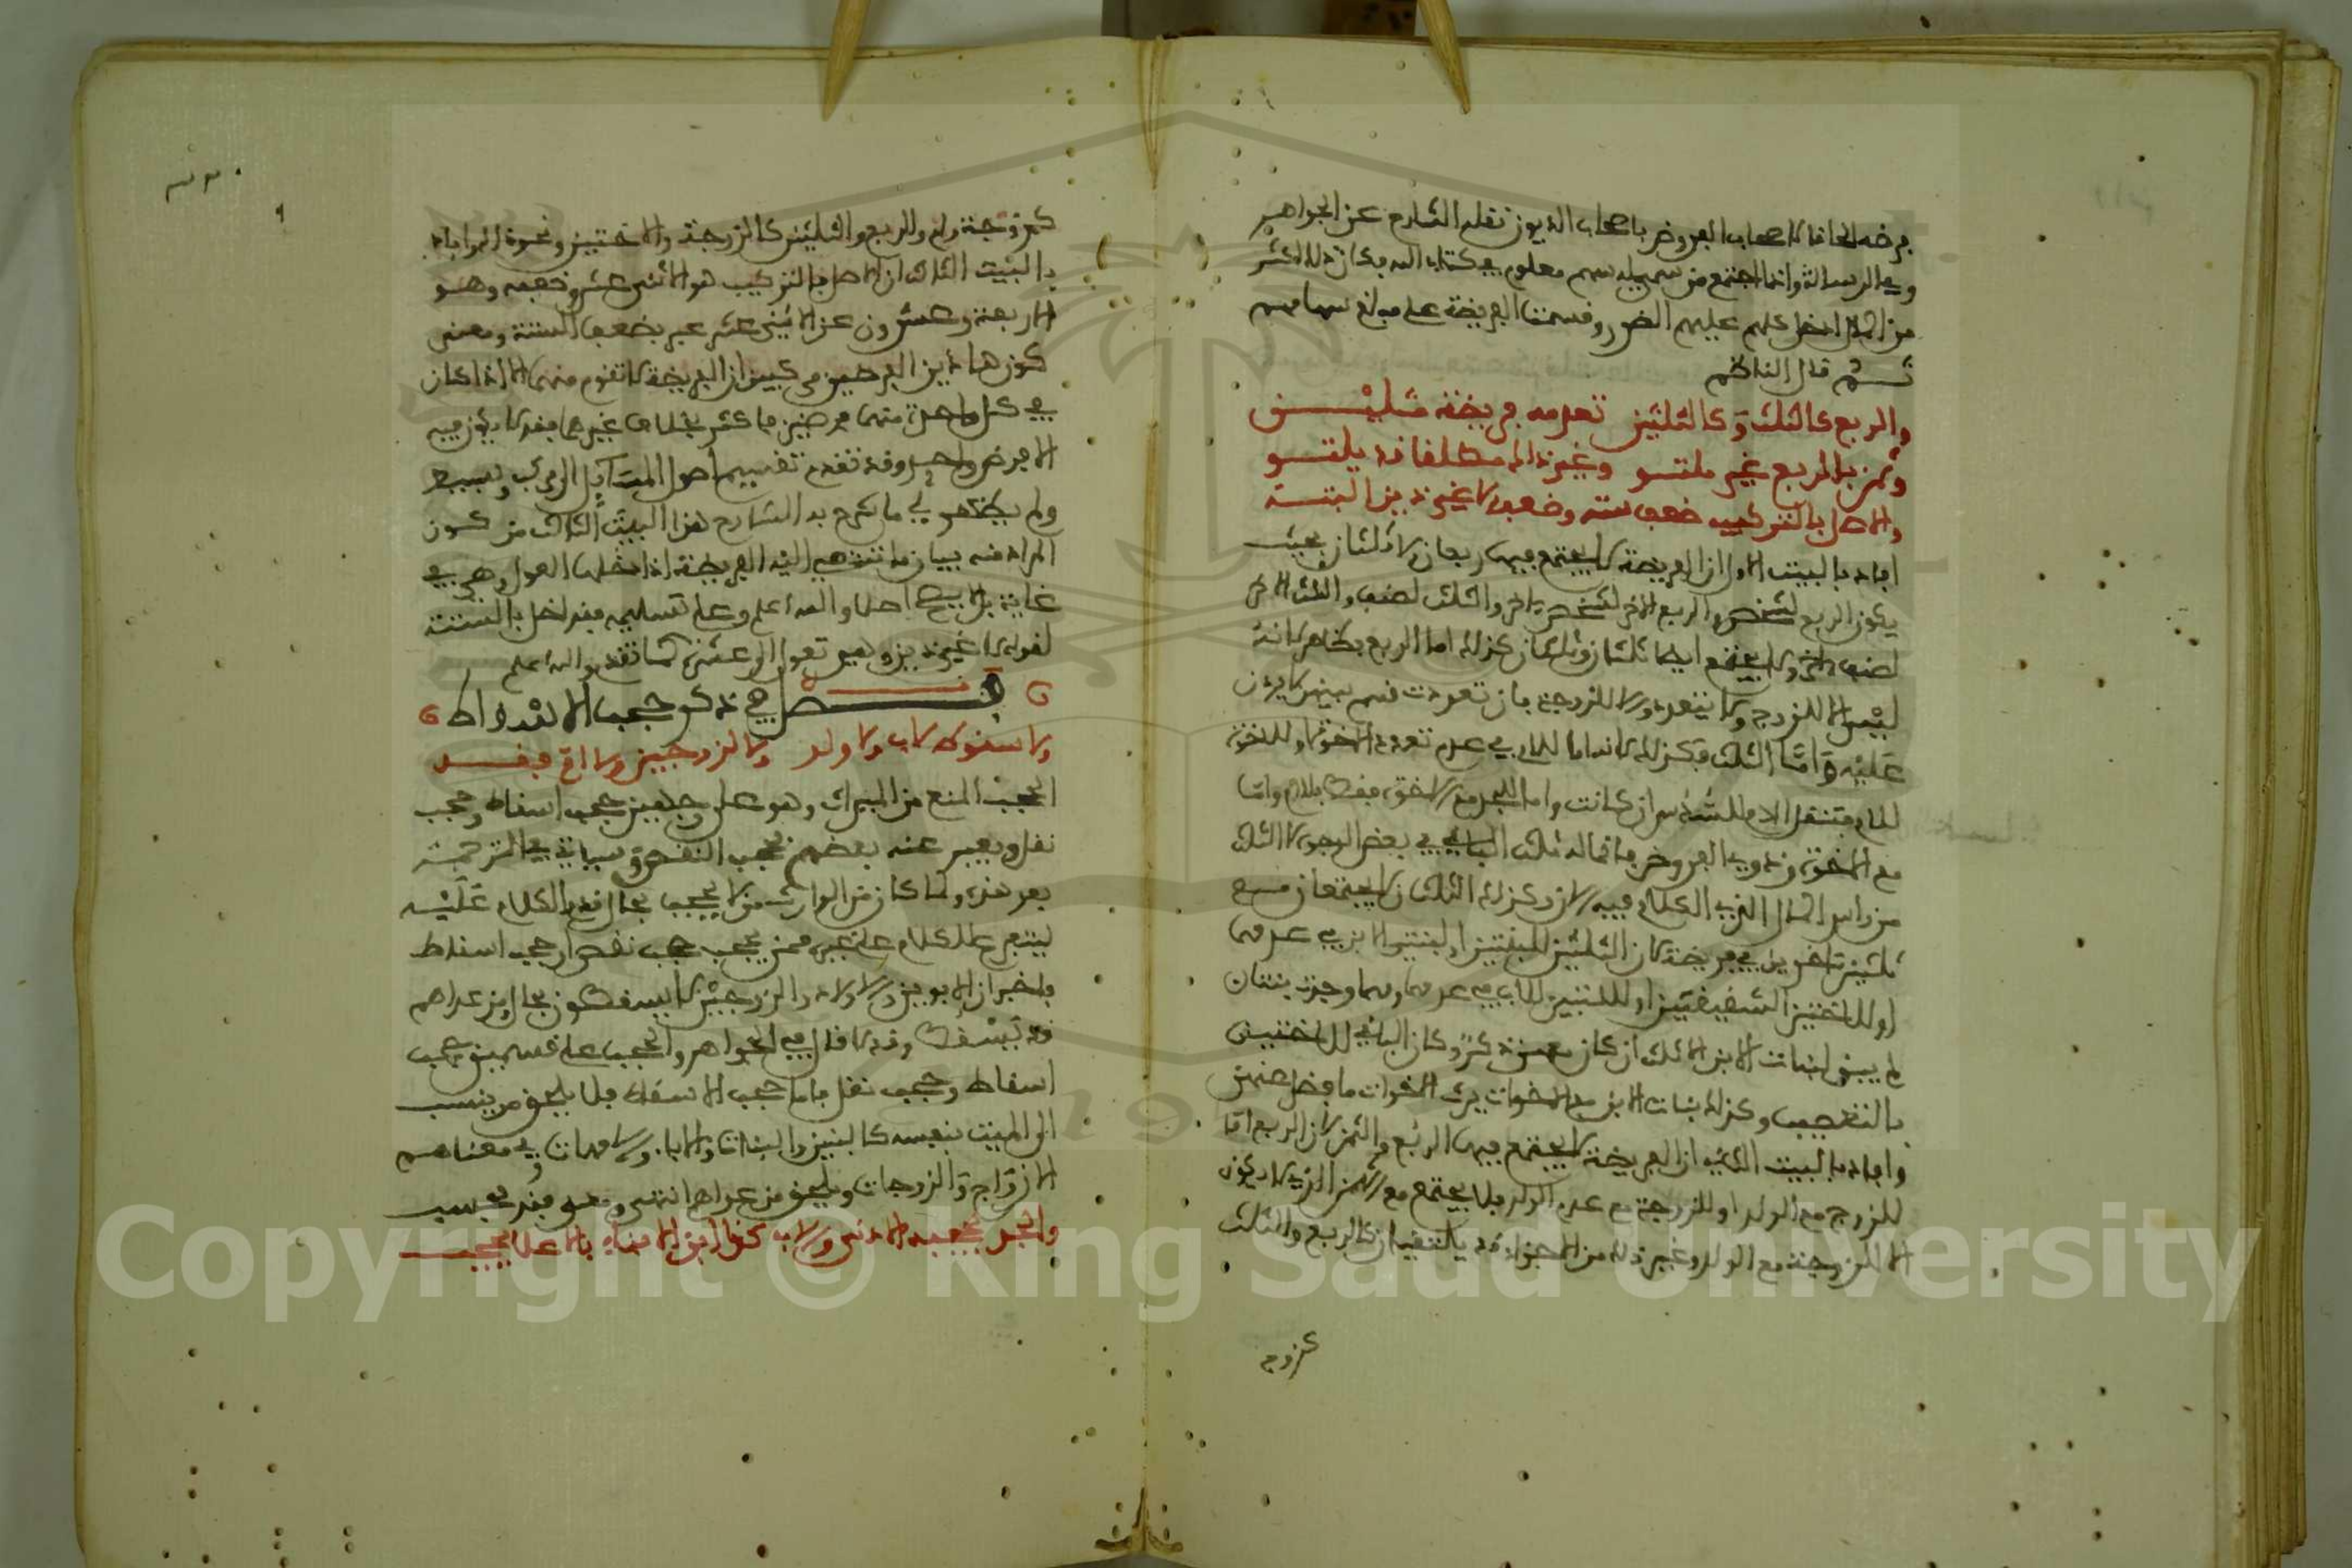 فرضه الحاقا لاصحاب الفروض باصحاب الديون نقله الشارح عن الجواهر
وفي الرسالة واذا اجتمع من سمي له سهم معلوم في كتاب الله وكان ذلك اكثر
من المال ادخل عليهم الضرر وقسمت الفريضة على مبلغ سهامهم
ثم قال الناظم
والربع كالثلث وكالثلثين تعدمه فريضة مثلين
وثمن بالربع غير ملتق وغير ذاك مطلقا قد يلتق
والاصل بالتركيب ضعف سته وضعفه لا غير ذين البته
افاد بالبيت الاول ان الفريضة لا يجتمع فيها ربعان ولا ثلثان بحيث
يكون الربع لشخص والربع الاخر لشخص اخر والثلث لصنف والثلث الاخر
لصنف اخر ولا يجتمع ايضا ثلثان وثلثان كذلك اما الربع فظاهر لانه
ليس الا للزوج ولا يتعدد وللزوجة فان تعددت قسم بينهن لا يزدن
عليه واما الثلث فكذلك لانه اما للام في عدم تعدد الاخوة او للاخوة
للام فتنتقل الام للسدس ان كانت واما للجد مع الاخوة فقط بلام واما
مع الاخوة وذوي الفروض فانما له ثلث الباقي في بعض الوجوه لا الثلث
من راس المال الذي الكلام فيه وكذلك الثلثان لا يجتمعان مع
ثلثين اخرين في فريضة لان الثلثين للبنتين او لبنتي الابن في عدمهما
او للاختين الشقيقتين او للتين للاب في عدمهما ومهما وجدت بنتان
لم يبق لبنات الابن الا الثلث ان كان معهن ذكر وكان الباقي للاختين
بالتعصيب وكذلك بنات الابن مع الاخوات يرث الاخوات ما فضل عنهن
وافاد بالبيت الثاني ان الفريضة لا يجتمع فيها الربع والثمن لان الربع اما
للزوج مع الولد او للزوجة مع عدم الولد فلا يجتمع مع الثمن الذي لا يكون
الا للزوجة مع الولد وغير ذلك من الاجزاء قد يلتقيان كالربع والثلث
كزوج
كزوجة وام والربع والثلثين كالزوجة والاختين ونحو ذلك وافاد
بالبيت الثالث ان الاصل بالتركيب هو الاثنى عشر وضعفه وهو
الاربعة وعشرون عن الاثنى عشر عبر بضعف الستة ومعنى
كون هاذين الفرضين مركبين ان الفريضة لا تقوم منهما الا اذا كان
في كل واحدة منهما فرضين فاكثر بخلاف غيرهما فقد لا يكون فيه
الا فرض واحد وقد تقدم تقسيم اصول المسائل الى مركب وبسيط
ولم يظهر لي ما شرح به الشارح هذا البيت الثالث من كون
المراد منه بيان ما تنتهي اليه الفريضة اذا دخلها العول وهي في
غاية والله اعلم وعلى تسليمه فقد اخل بالستة
لقوله لا غير ذين وهي تعول الى عشرة كما تقدم والله اعلم
فصل في ذكر حجب الاسقاط
ولا سقوط لاب ولا ولد ولا لزوجين ولا ام فقد
الحجب المنع من الميراث وهو على وجهين حجب اسقاط وحجب
نقل ويعبر عنه بعضهم بحجب النقص وسياتي في الترجمة
بعد هذه ولما كان من الوارث من لا يحجب بحال قدم الكلام عليه
ليتفرغ للكلام على غيره ممن يحجب حجب نقص او حجب اسقاط
واخبر ان الابوين والاولاد والزوجين لا يسقطون بحال ومن عداهم
قد يسقط وقد لا قال في الجواهر والحجب على قسمين حجب
اسقاط وحجب نقل فاما حجب الاسقاط فلا يلحق من ينسب
الى الميت بنفسه كالبنين والبنات والاباء والامهات وفي معناهم
الازواج والزوجات ويلحق من عداهم انتهى ومعنى فقد فحسب
والجد يحجبه الادنى والاب كذا ابن الابناء بالاعلى يحجب